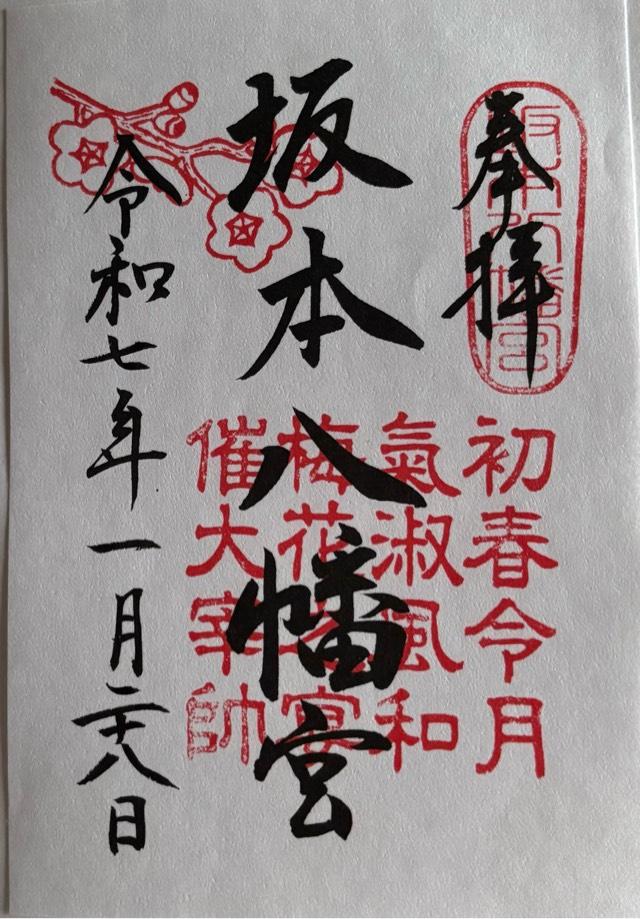 奉拝
坂本八幡宮
初春令月
氣淑風和
梅花之宴
催大宰帥
坂本八幡宮
令和七年一月二十八日